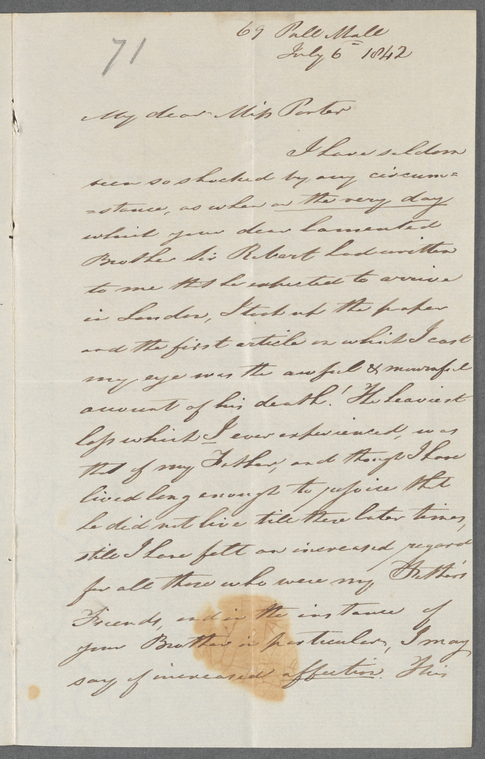 71
69 Pall Mall
July 6th 1842
My dear Miss Porter
I have seldom
been so shocked by any circum=
=stance, as when on the very day
which your dear lamented
Brother Sir Robert had written
to me that he expected to arrive
in London, I took up the paper
and the first article on which I cast
my eye was the awful & mournful
account of his death! The heaviest
loss which I ever experienced, was
that of my Father, and though I have
lived long enough to rejoice that
he did not live till these later times,
still I have felt an increased regard
for all those who were my Father's
Friends, and in the instance of
your Brother in particular, I may
say of increased affection. This